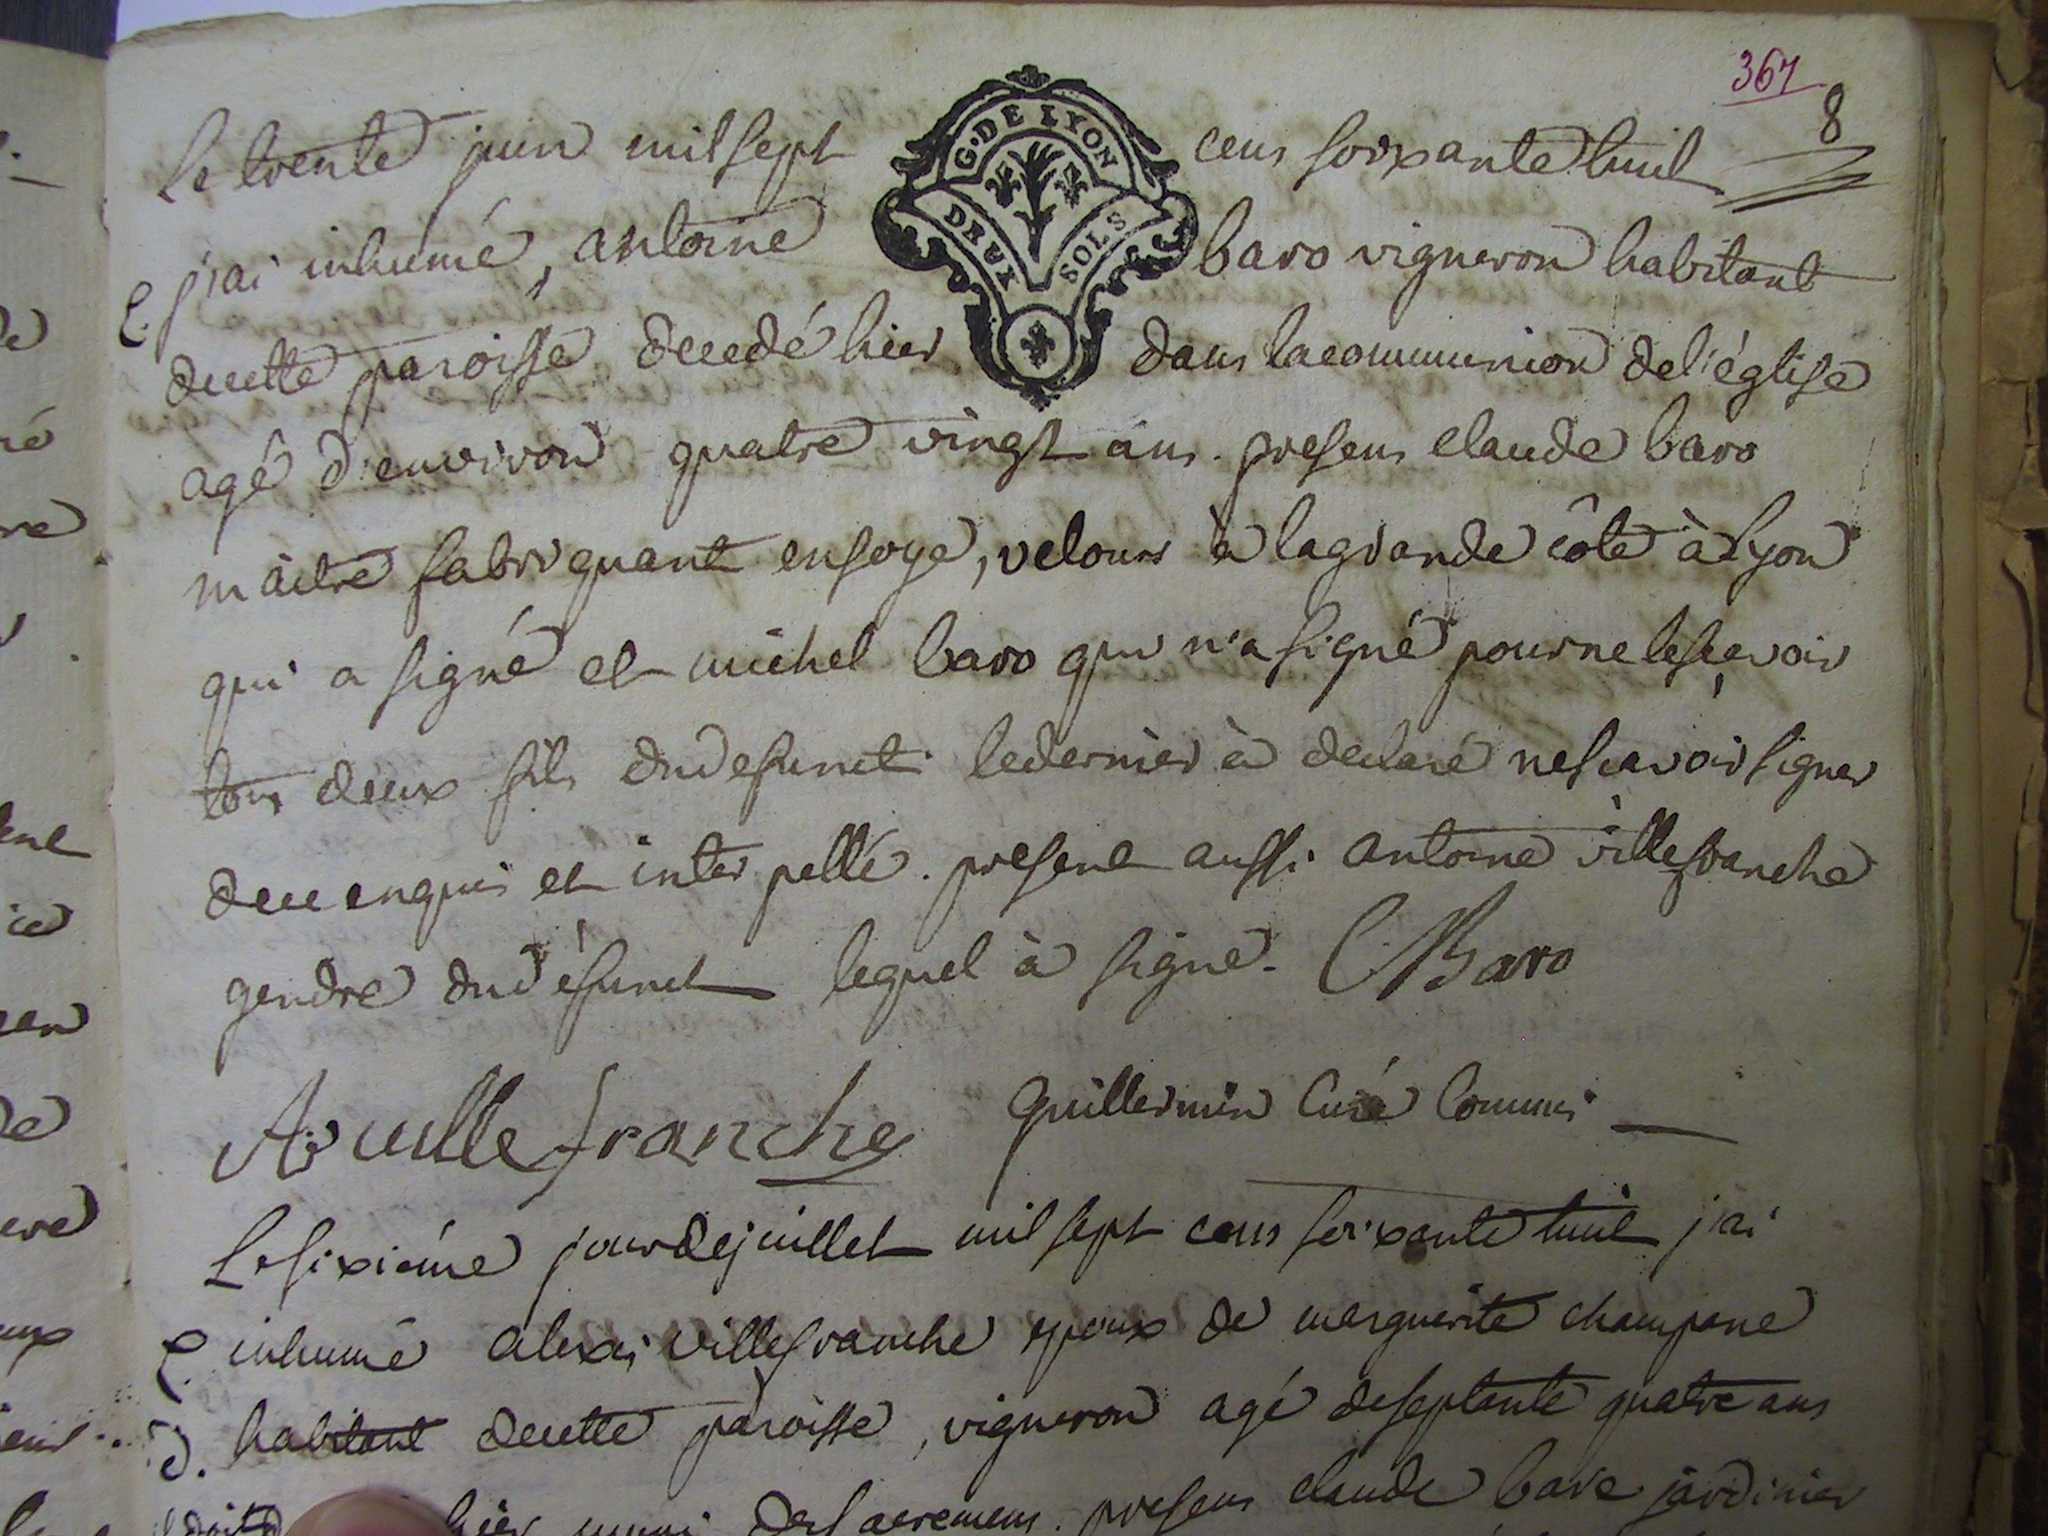 367
8
G. DE LYON
DEUX SOLS
Le trente juin mil sept cens soixante huit
j'ai inhumé, antoine baro vigneron habitant
decette paroisse decedé hier dans lacommunion del'église
agé d'environ quatre vingt ans. presens claude baro
maitre fabriquant ensoye, velours à lagrande côte à Lyon
qui a signé et michel baro qui n'a signé pour ne lesçavoir
tous deux fils dudefunct ledernier à declaré nescavoir signer
dece enquis et inter pellé. present aussi antoine villefranche
gendre dudéfunct lequel à signé. C Baro
A villefranche guillermin Curé Commis
Lesixiéme jourdejuillet mil sept cens soixante huit j'ai
inhumé alexi villefranche epoux de marguerite champane
habitant decette paroisse, vigneron agé deseptante quatre ans
hier muni desSacremens. presens claude bare jardinier